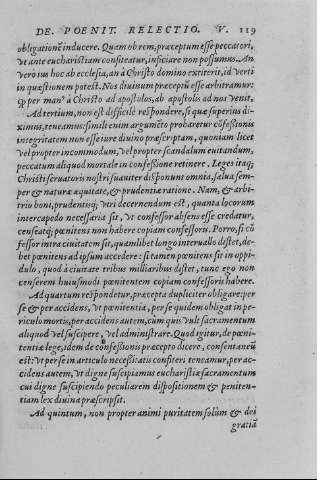 DE. POENIT. RELECTIO. V. 119
obligationē inducere. Quam ob rem, præceptum esse peccatori,
vt ante eucharistiam confiteatur, inficiare non possumus. An
vero ius hoc ab ecclesia, an à Christo domino extiterit, id verti
in quæstionem potest. Nos diuinum præceptū esse arbitramur:
ꝙ per manꝰ à Christo ad apostolos, ab apostolis ad nos venit.
Ad tertium, non est difficile respōdere, si quæ superius di-
ximus, teneamus: simili enim argumēto probaretur cōfessionis
integritatem non esse iure diuino præscriptam, quoniam licet
vel propter incommodum, vel propter scandalum euitandum,
peccatum aliquod mortale in confessione retinere. Leges itaq;
Christi seruatoris nostri suauiter disponunt omnia, salua sem-
per & naturæ æquitate, & prudentiæ ratione. Nam, & arbi-
trio boni, prudentisq; viri decernendum est, quanta locorum
intercapedo necessaria sit, vt confessor absens esse credatur,
censeatq; pœnitens non habere copiam confessoris. Porro, si cō
fessor intra ciuitatem sit, quamlibet longo interuallo distet, de-
bet pœnitens ad ipsum accedere: si tamen pœnitens sit in oppi-
dulo, quod à ciuitate tribus milliaribus distet, tunc ego non
censerem huiusmodi pœnitentem copiam confessoris habere.
Ad quartum respōdetur, præcepta dupliciter obligare: per
se & per accidens, vt pœnitentia, per se quidem obligat in pe-
riculo mortis, per accidens autem, cùm quis vult sacramentum
aliquod vel suscipere, vel administrare. Quod igitur, de pœni-
tentiæ lege, idem de cōfessionis præcepto dicere, consentaneū
est: vt per se in articulo necessitatis confiteri teneamur, per ac-
cidens autem, vt digne suscipiamus eucharistiæ sacramentum
cui digne suscipiendo peculiarem dispositionem & peniten-
tiam lex diuina præscripsit.
Ad quintum, non propter animi puritatem solùm & dei
gratiā